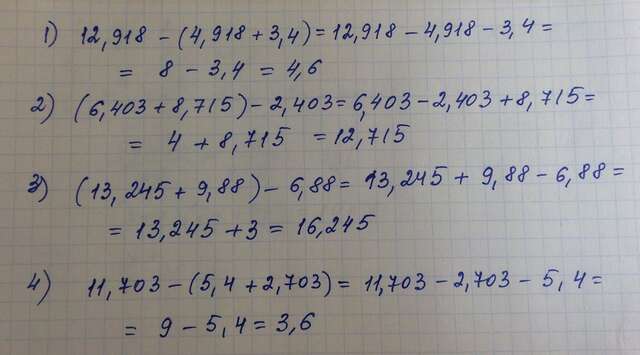 1) 12,918 - (4,918 + 3,4) = 12,918 - 4,918 - 3,4 =
= 8 - 3,4 = 4,6
2) (6,403 + 8,715) - 2,403 = 6,403 - 2,403 + 8,715 =
= 4 + 8,715 = 12,715
3) (13,245 + 9,88) - 6,88 = 13,245 + 9,88 - 6,88 =
= 13,245 + 3 = 16,245
4) 11,703 - (5,4 + 2,703) = 11,703 - 2,703 - 5,4 =
= 9 - 5,4 = 3,6